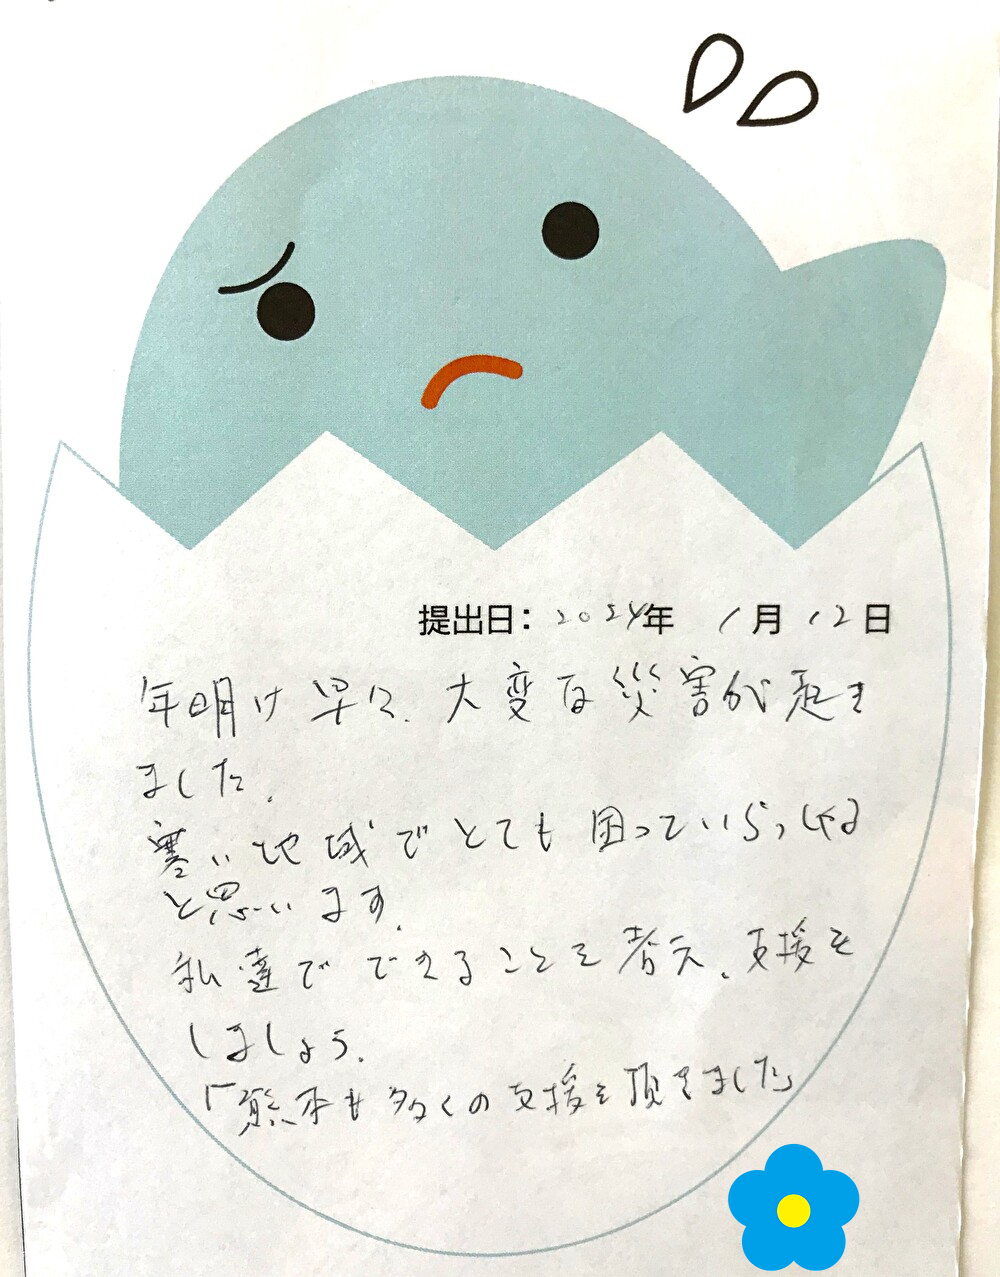 提出日：2024年 1月 12日
年明け早々、大変な災害が起き
ました。
寒い地域でとても困っていらっしゃる
と思います。
私達でできることを考え、支援を
しましょう。
「熊本も多くの支援を頂きました」